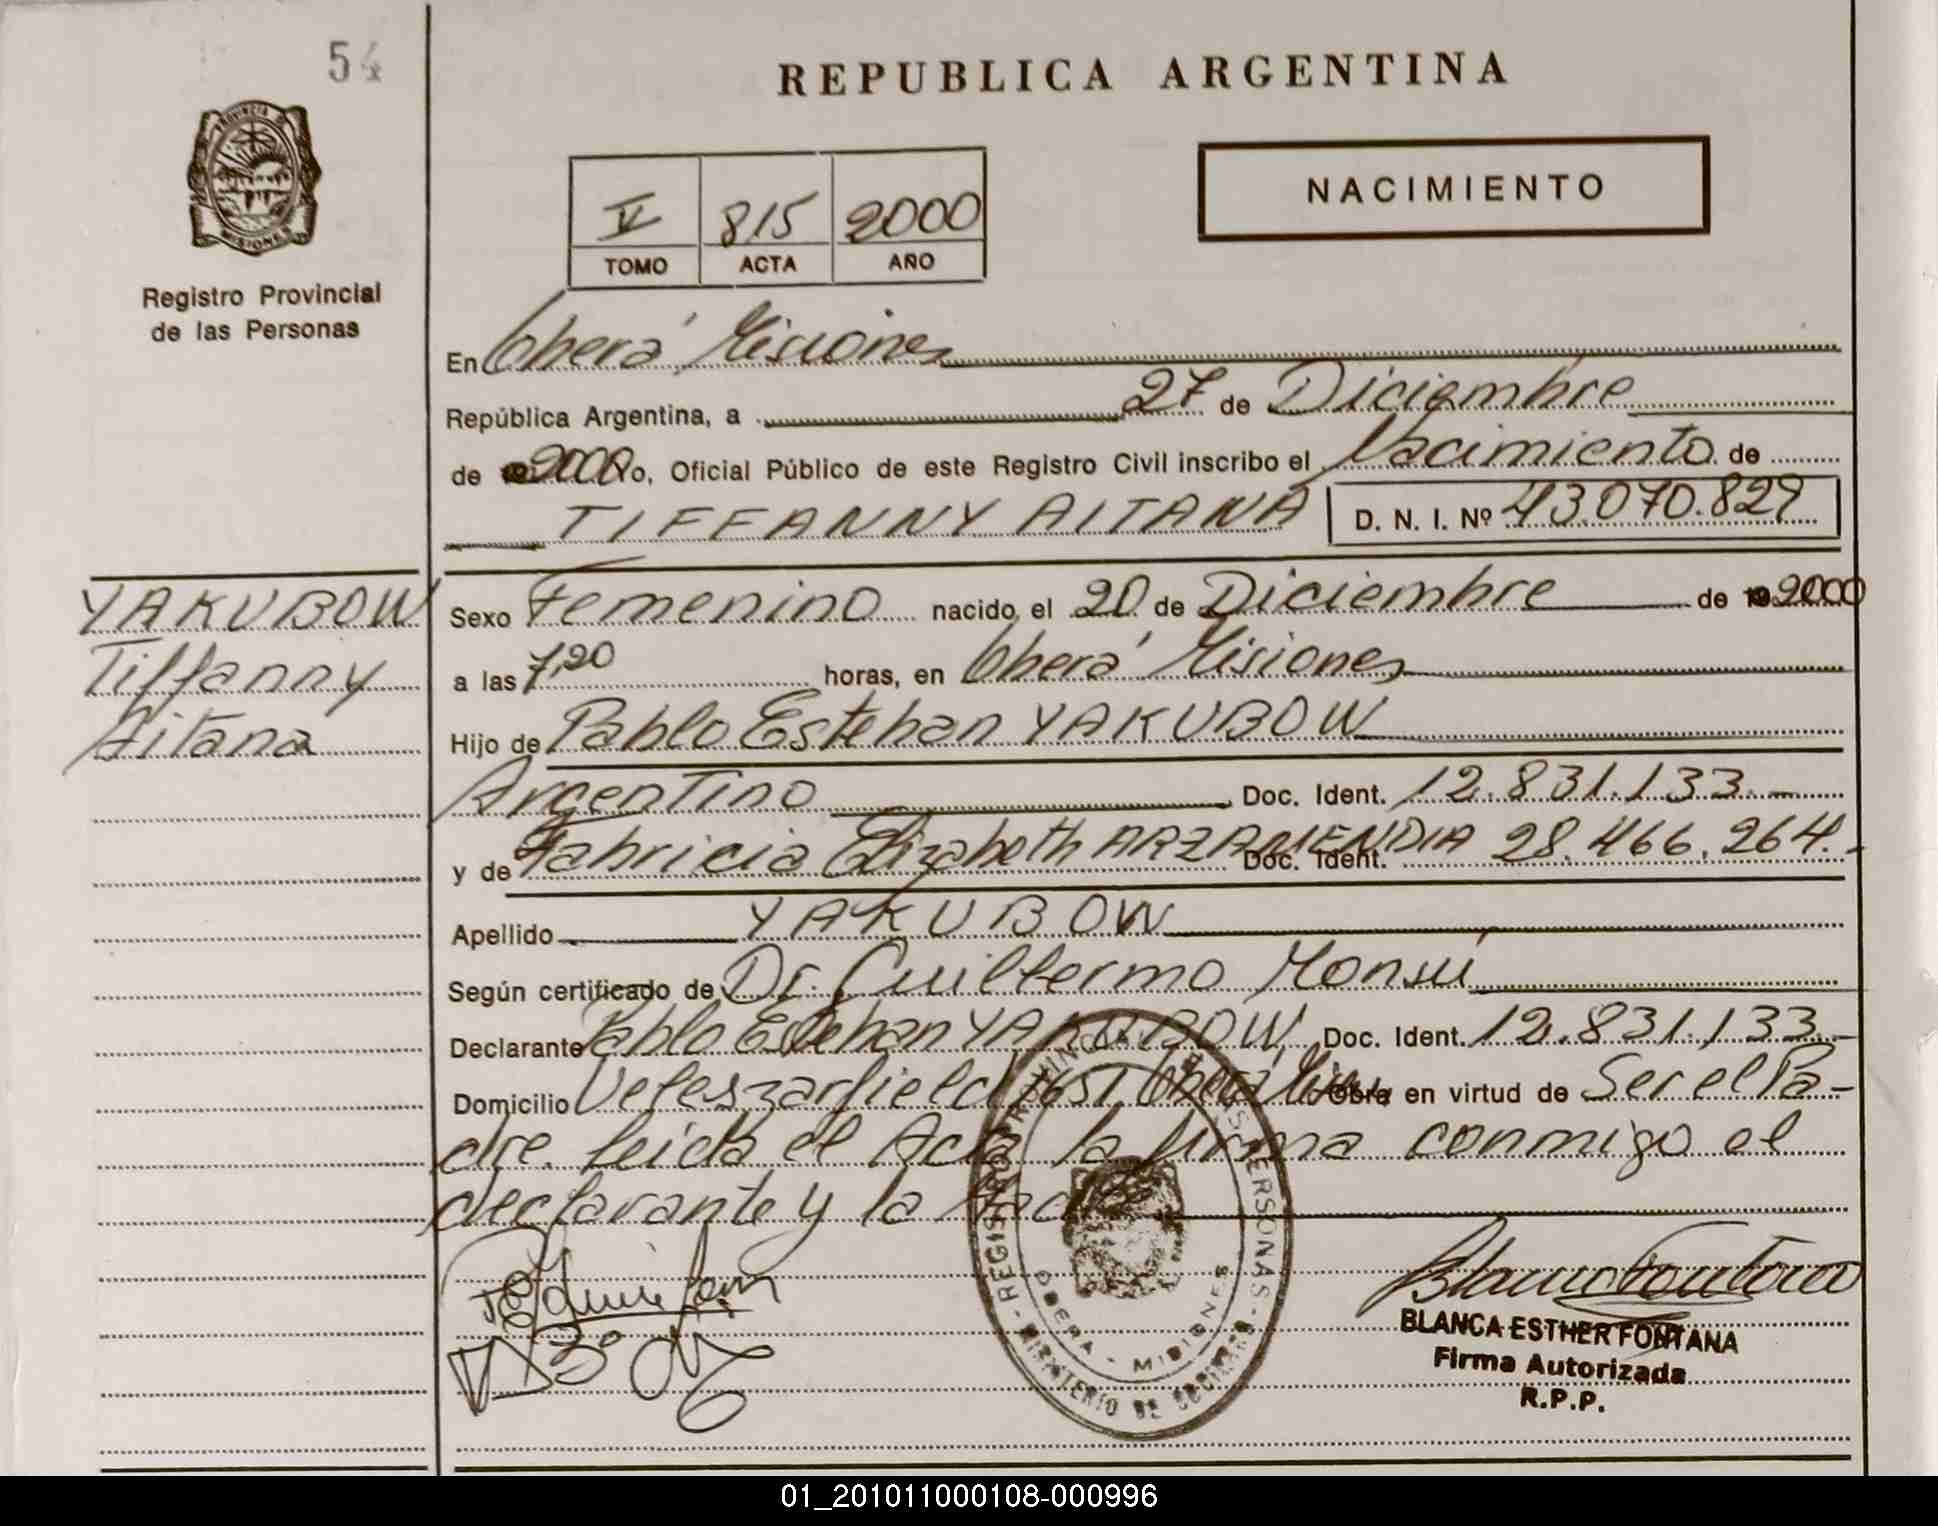 54
REPUBLICA ARGENTINA
PROVINCIA DE
MISIONES
Registro Provincial
de las Personas
V 815 2000
TOMO ACTA AÑO
NACIMIENTO
En Oberá Misiones
República Argentina, a 27 de Diciembre
de 2000 Yo, Oficial Público de este Registro Civil inscribo el Nacimiento de
TIFFANNY AITANA D. N. I. Nº 43.070.829
YAKUBOW
Tiffanny
Aitana
Sexo Femenino nacido el 20 de Diciembre de 19 2000
a las 7,20 horas, en Oberá Misiones
Hijo de Pablo Esteban YAKUBOW
Argentino Doc. Ident. 12.831.133.-
y de Fabricia Elizabeth ARZAMENDIA Doc. Ident. 28.466.264.-
Apellido YAKUBOW
Según certificado de Dr. Guillermo Monsú
Declarante Pablo Esteban YAKUBOW Doc. Ident. 12.831.133.-
Domicilio Veleszarfield 1651 Oberá Mnes Obra en virtud de Ser el Pa-
dre. leida el Acta la firma conmigo el
declarante y la Madre
REGISTRO PROVINCIAL DE LAS PERSONAS
OBERA - MISIONES
MINISTERIO DE GOBIERNO
BLANCA ESTHER FONTANA
Firma Autorizada
R.P.P.
01_201011000108-000996